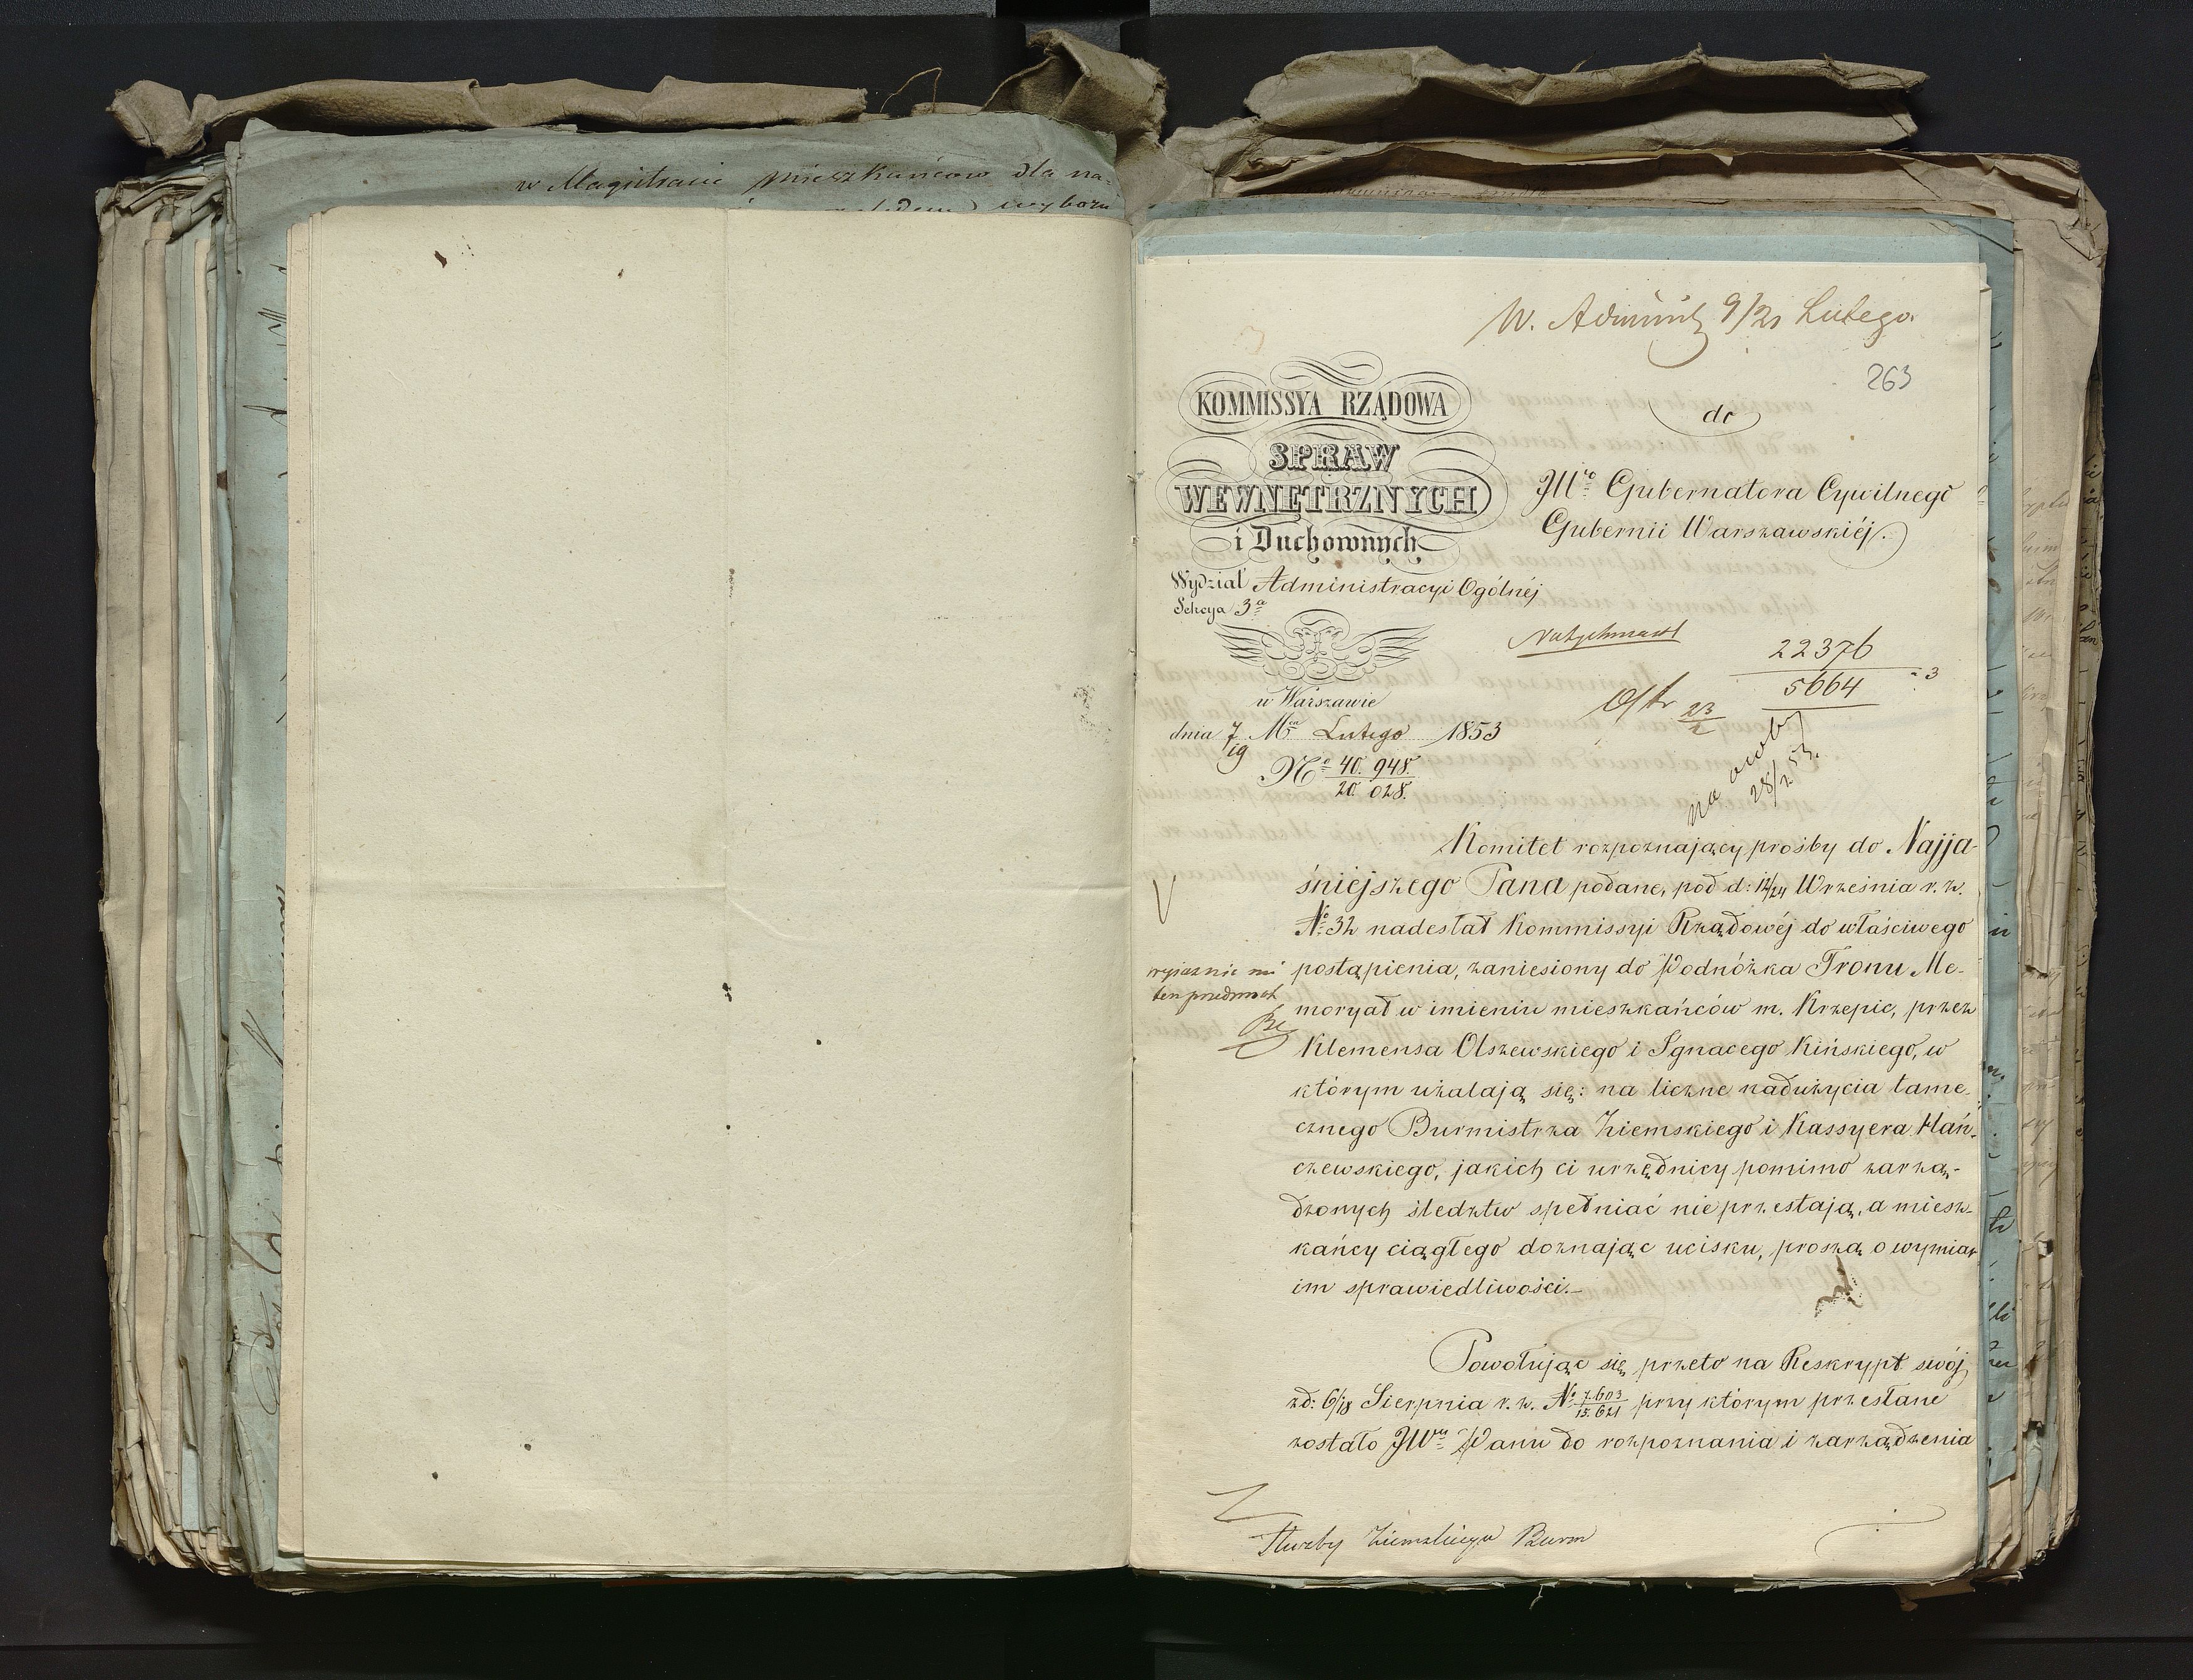 w Magistracie mieszkańców dla na-
wyboru
W. Administr 9/21 Lutego.
263
KOMMISSYA RZĄDOWA
SPRAW
WEWNĘTRZNYCH
i Duchownych
Wydział Administracyi Ogólnéj
Sekcya 3a
w Warszawie
dnia 7/19 Mca Lutego 1853
No 40.948./20.028.
do
JWo Gubernatora Cywilnego
Gubernii Warszawskiéj.
Natychmiast
22376
5664
3
23/2
28/2 53.
Komitet rozpoznający prośby do Najja-
śniejszego Pana podane, pod d: 12/24 Września r. z.
No 32 nadesłał Kommissyi Rządowéj do właściwego
postąpienia, zaniesiony do Podnóżka Tronu Me-
moryał w imieniu mieszkańców m. Krzepic, przez
Klemensa Olszewskiego i Ignacego Kińskiego, w
którym użalają się: na liczne nadużycia tame-
cznego Burmistrza Ziemskiego i Kassyera Hań-
czewskiego, jakich ci urzędnicy pomimo zarzą-
dzonych śledztw spełniać nie przestają, a miesz-
kańcy ciągłego doznając ucisku, proszą o wymiar
im sprawiedliwości.-
wyjaśnić mi
ten przedmiot
Powołując się przeto na Reskrypt swój
zd: 6/18 Sierpnia r. z. No 7.603/15.621 przy którym przesłane
zostało JWu Panu do rozpoznania i zarządzenia
Służby Ziemskiego Burm